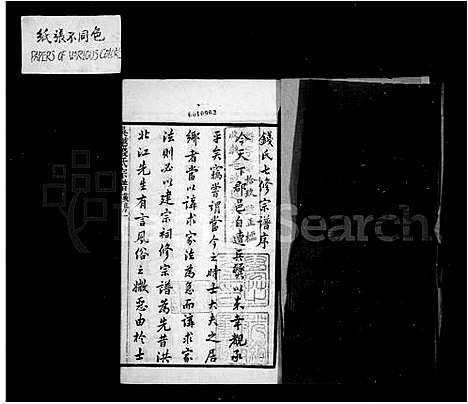 紙張不同色
PAPERS OF VARIOUS COLORS
錢氏七修宗譜序
今天下郡邑自遭兵燹以來幸親承
平矣竊嘗謂當今之時士大夫之居
鄉者當以講求家法為急而講求家
法則必以建宗祠修宗譜為先昔洪
北江先生有言風俗之敝惡由於士
Search